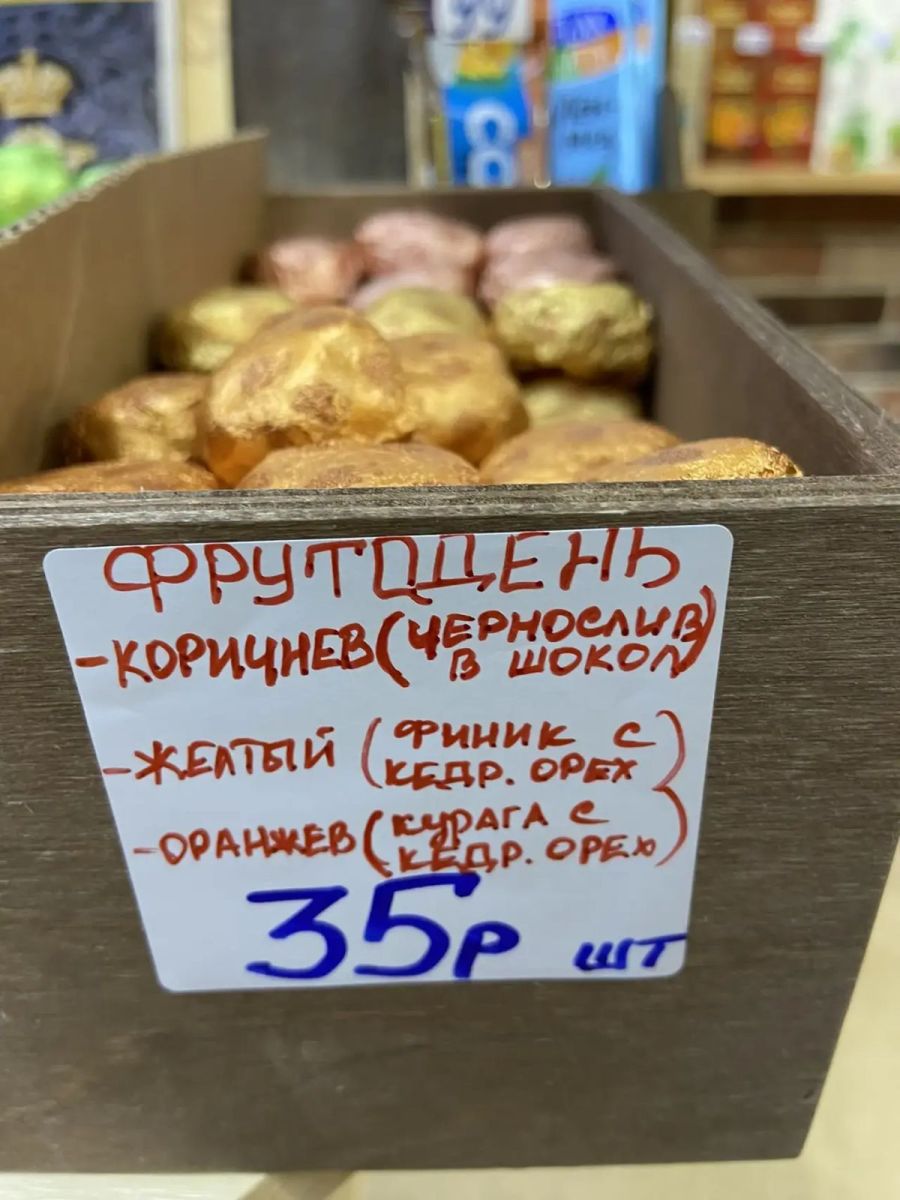 99
ФРУТОДЕНЬ
-КОРИЧНЕВ (ЧЕРНОСЛИВ
В ШОКОЛ)
-ЖЕЛТЫЙ (ФИНИК С
КЕДР. ОРЕХ)
-ОРАНЖЕВ (КУРАГА С
КЕДР. ОРЕХ)
35р шт